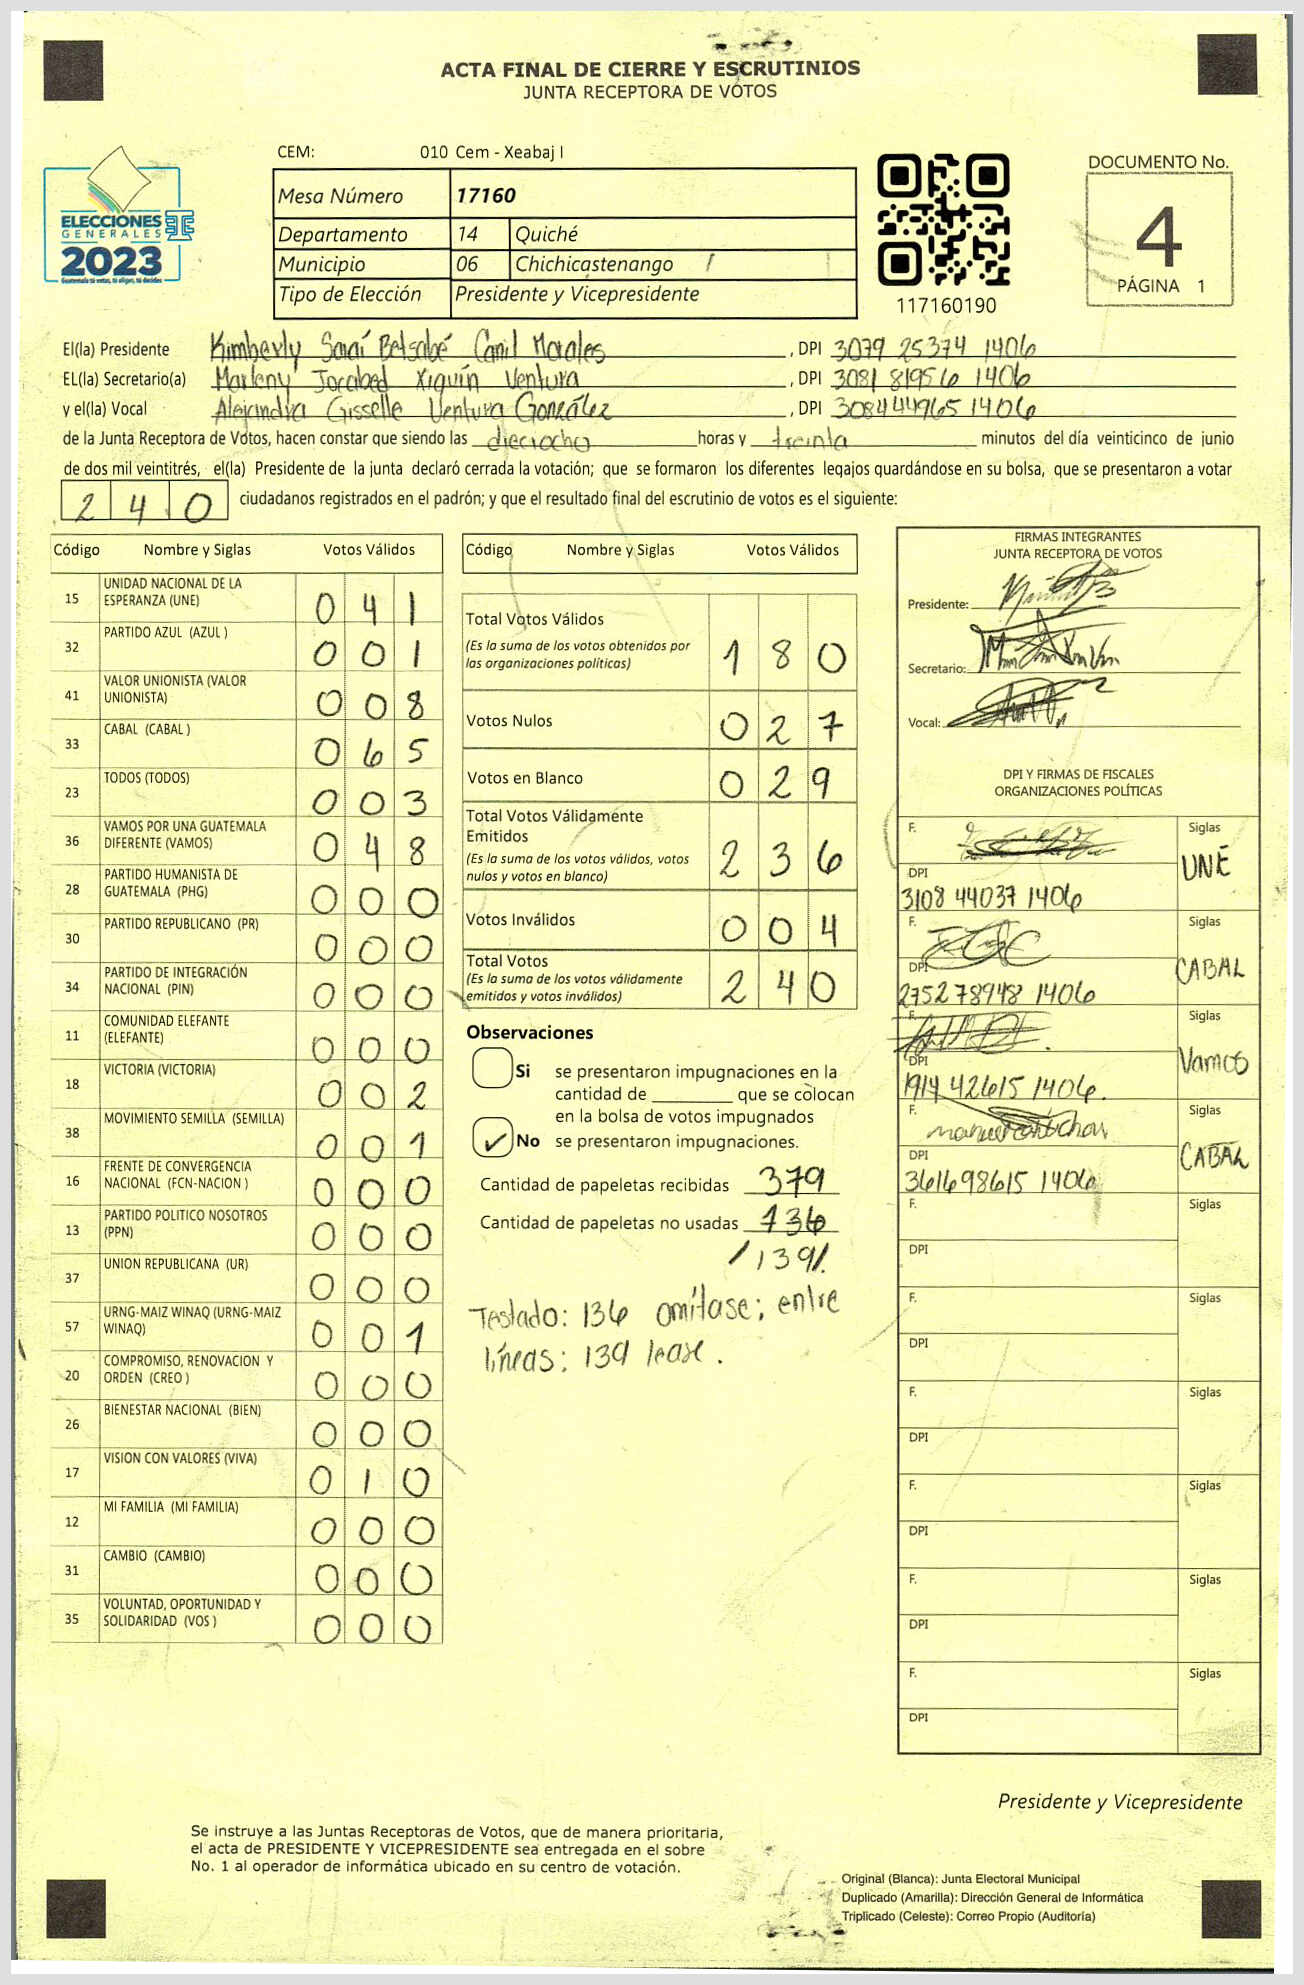 ACTA FINAL DE CIERRE Y ESCRUTINIOS
JUNTA RECEPTORA DE VOTOS
ELECCIONES
GENERALES
2023
Guatemala tú votas, tú eliges, tú decides
CEM: 010 Cem - Xeabaj I
Mesa Número 17160
Departamento 14 Quiché
Municipio 06 Chichicastenango
Tipo de Elección Presidente y Vicepresidente
117160190
DOCUMENTO No.
4
PÁGINA 1
El(la) Presidente Kimberly Saraí Betsabé Canil Morales, DPI 3079 25374 1406
EL(la) Secretario(a) Marleny Jocabed Xiquín Ventura, DPI 3081 81956 1406
y el(la) Vocal Alejandra Gisselle Ventura González, DPI 3084 44965 1406
de la Junta Receptora de Votos, hacen constar que siendo las dieciocho horas y treinta minutos del día veinticinco de junio
de dos mil veintitrés, el(la) Presidente de la junta declaró cerrada la votación; que se formaron los diferentes legajos guardándose en su bolsa, que se presentaron a votar
240 ciudadanos registrados en el padrón; y que el resultado final del escrutinio de votos es el siguiente:
Código Nombre y Siglas Votos Válidos
15 UNIDAD NACIONAL DE LA ESPERANZA (UNE) 041
32 PARTIDO AZUL (AZUL ) 001
41 VALOR UNIONISTA (VALOR UNIONISTA) 008
33 CABAL (CABAL ) 065
23 TODOS (TODOS) 003
36 VAMOS POR UNA GUATEMALA DIFERENTE (VAMOS) 048
28 PARTIDO HUMANISTA DE GUATEMALA (PHG) 000
30 PARTIDO REPUBLICANO (PR) 000
34 PARTIDO DE INTEGRACIÓN NACIONAL (PIN) 000
11 COMUNIDAD ELEFANTE (ELEFANTE) 000
18 VICTORIA (VICTORIA) 002
38 MOVIMIENTO SEMILLA (SEMILLA) 001
16 FRENTE DE CONVERGENCIA NACIONAL (FCN-NACION ) 000
13 PARTIDO POLITICO NOSOTROS (PPN) 000
37 UNION REPUBLICANA (UR) 000
57 URNG-MAIZ WINAQ (URNG-MAIZ WINAQ) 001
20 COMPROMISO, RENOVACION Y ORDEN (CREO ) 000
26 BIENESTAR NACIONAL (BIEN) 000
17 VISION CON VALORES (VIVA) 010
12 MI FAMILIA (MI FAMILIA) 000
31 CAMBIO (CAMBIO) 000
35 VOLUNTAD, OPORTUNIDAD Y SOLIDARIDAD (VOS ) 000
Código Nombre y Siglas Votos Válidos
Total Votos Válidos 180
(Es la suma de los votos obtenidos por
las organizaciones políticas)
Votos Nulos 027
Votos en Blanco 029
Total Votos Válidamente
Emitidos 236
(Es la suma de los votos válidos, votos
nulos y votos en blanco)
Votos Inválidos 004
Total Votos 240
(Es la suma de los votos válidamente
emitidos y votos inválidos)
Observaciones
Si se presentaron impugnaciones en la
cantidad de ________ que se colocan
en la bolsa de votos impugnados
✓ No se presentaron impugnaciones.
Cantidad de papeletas recibidas 379
Cantidad de papeletas no usadas 136
/139/.
Testado: 136 omítase; entre
líneas: 139 lease.
FIRMAS INTEGRANTES
JUNTA RECEPTORA DE VOTOS
Presidente:
Secretario:
Vocal:
DPI Y FIRMAS DE FISCALES
ORGANIZACIONES POLÍTICAS
F. Siglas UNE
DPI
3108 44037 1406
F. Siglas CABAL
DPI
2752 78948 1406
F. Siglas Vamos
DPI
1914 42615 1406.
F. Siglas CABAL
DPI
3616 98615 1406
F. Siglas
DPI
F. Siglas
DPI
F. Siglas
DPI
F. Siglas
DPI
F. Siglas
DPI
F. Siglas
DPI
Presidente y Vicepresidente
Se instruye a las Juntas Receptoras de Votos, que de manera prioritaria,
el acta de PRESIDENTE Y VICEPRESIDENTE sea entregada en el sobre
No. 1 al operador de informática ubicado en su centro de votación.
Original (Blanca): Junta Electoral Municipal
Duplicado (Amarilla): Dirección General de Informática
Triplicado (Celeste): Correo Propio (Auditoría)